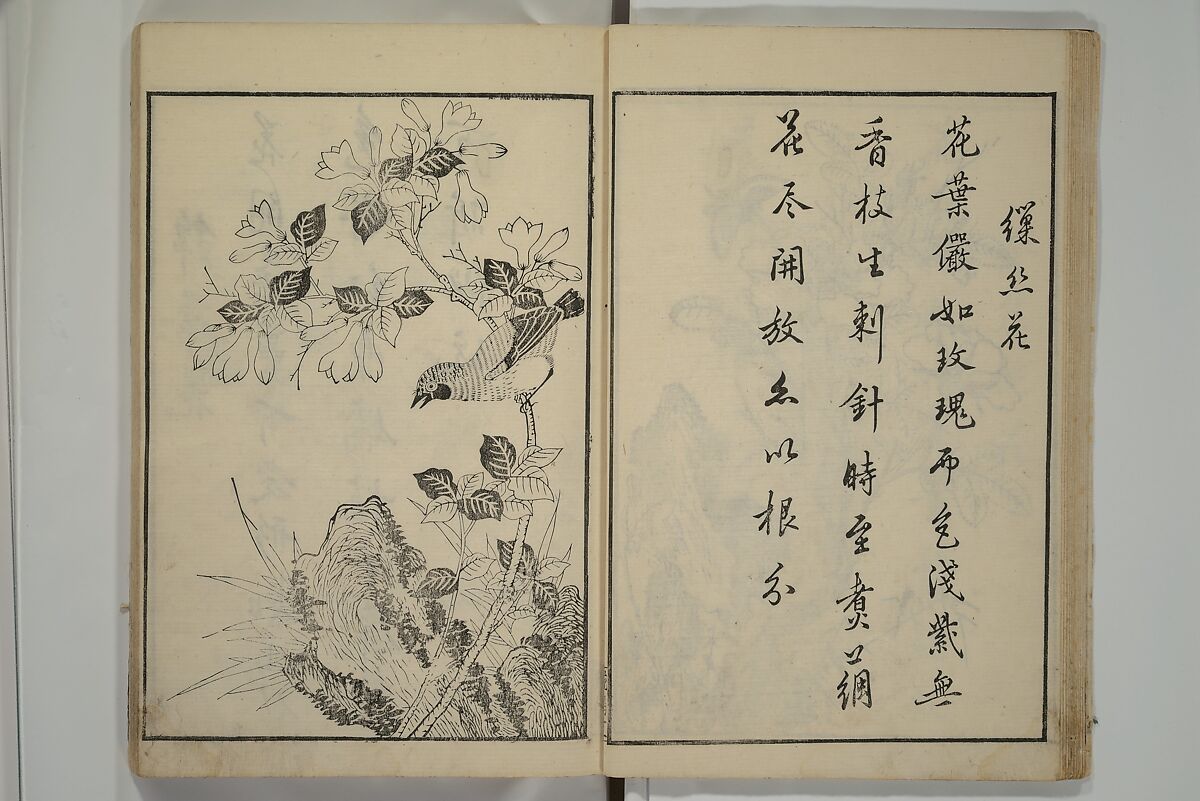 繅丝花
花葉儼如玫瑰而色淺紫無
香枝生刺針時至煮繭
花尽開放亦以根分